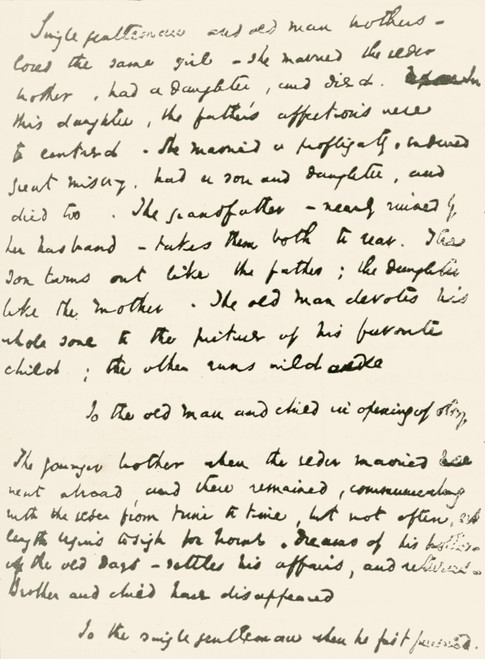 Single gentleman and old man brothers -
loved the same girl - she married the elder
brother, had a daughter, and died. In
this daughter, the father's affections were
to centered. She married a profligate, endured
great misery, had a son and daughter, and
died too. The grandfather - nearly ruined by
her husband - takes them both to rear. The
son turns out like the father; the daughter
like the mother. The old man devotes his
whole soul to the picture of his favorite
child; the other runs wild
To the old man and child in opening of story.
The younger brother when the elder married
went abroad, and there remained, communicating
with the elder from time to time, but not often, at
length begins to sigh for home. Dreams of his brother
in the old days - settles his affairs, and returns -
Brother and child have disappeared
To the single gentleman when he first